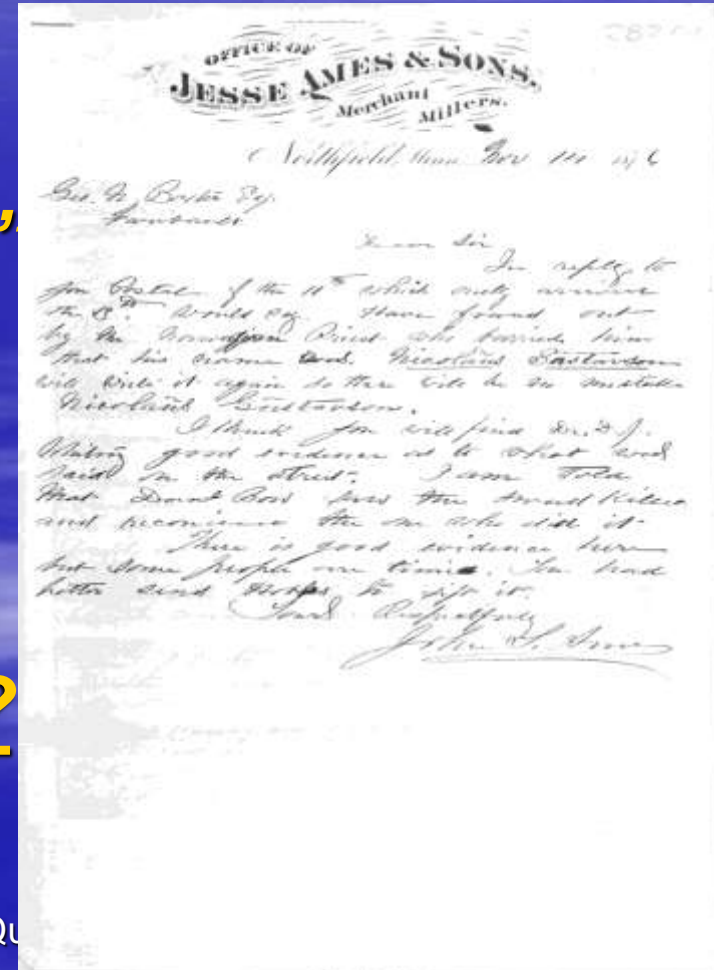 282
OFFICE OF
JESSE AMES & SONS,
Merchant Millers.
Northfield, Minn Nov 14 1876
Geo. N. Baxter Esq.
Faribault
Dear Sir
In reply to
your Postal of the 11th which only
the 13th would say Have found out
by the Norwegian Priest who burried him
that his name was Nicolaus Gustavson
will write it again so there will be no mistake
Nicolaus Gustavson.
I think you will find Dr. D. J.
Whiting good evidence as to what was
said on the street. I am told
that Bow saw the Swead Killed
and the one who did it
There is good evidence here
but some people are timid. You had
better send to sift it.
Yours Respectfully
John T. Ames
,
2
Qu